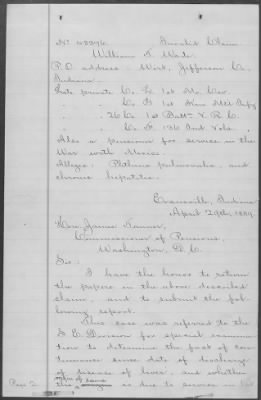 No 43976. Invalid Claim
William F. Wade
P.O. address: Wirt, Jefferson Co.,
Indiana.
Late private Co. L. 1st Mo Cav
" " Co. G. 1st Miss Mtd Infy
" " 26 Co. 1st Battn V. R. C.
" " Co. H. 136 Ind Vols.
Also a pensioner for service in the
War with Mexico.
Alleges: Phthisis pulmonalis, and
chronic hepatitis.
Evansville, Indiana
April 29th, 1889
Hon. James Tanner,
Commissioner of Pensions,
Washington, D.C.
Sir:
I have the honor to return
the papers in the above described
claim, and to submit the fol-
lowing report.
This case was referred to the
S. E. Division for special examina-
tion to determine the fact of con-
tinuance since date of discharge
of disease of liver, and whether
origin of same
the is due to service in
Page 2